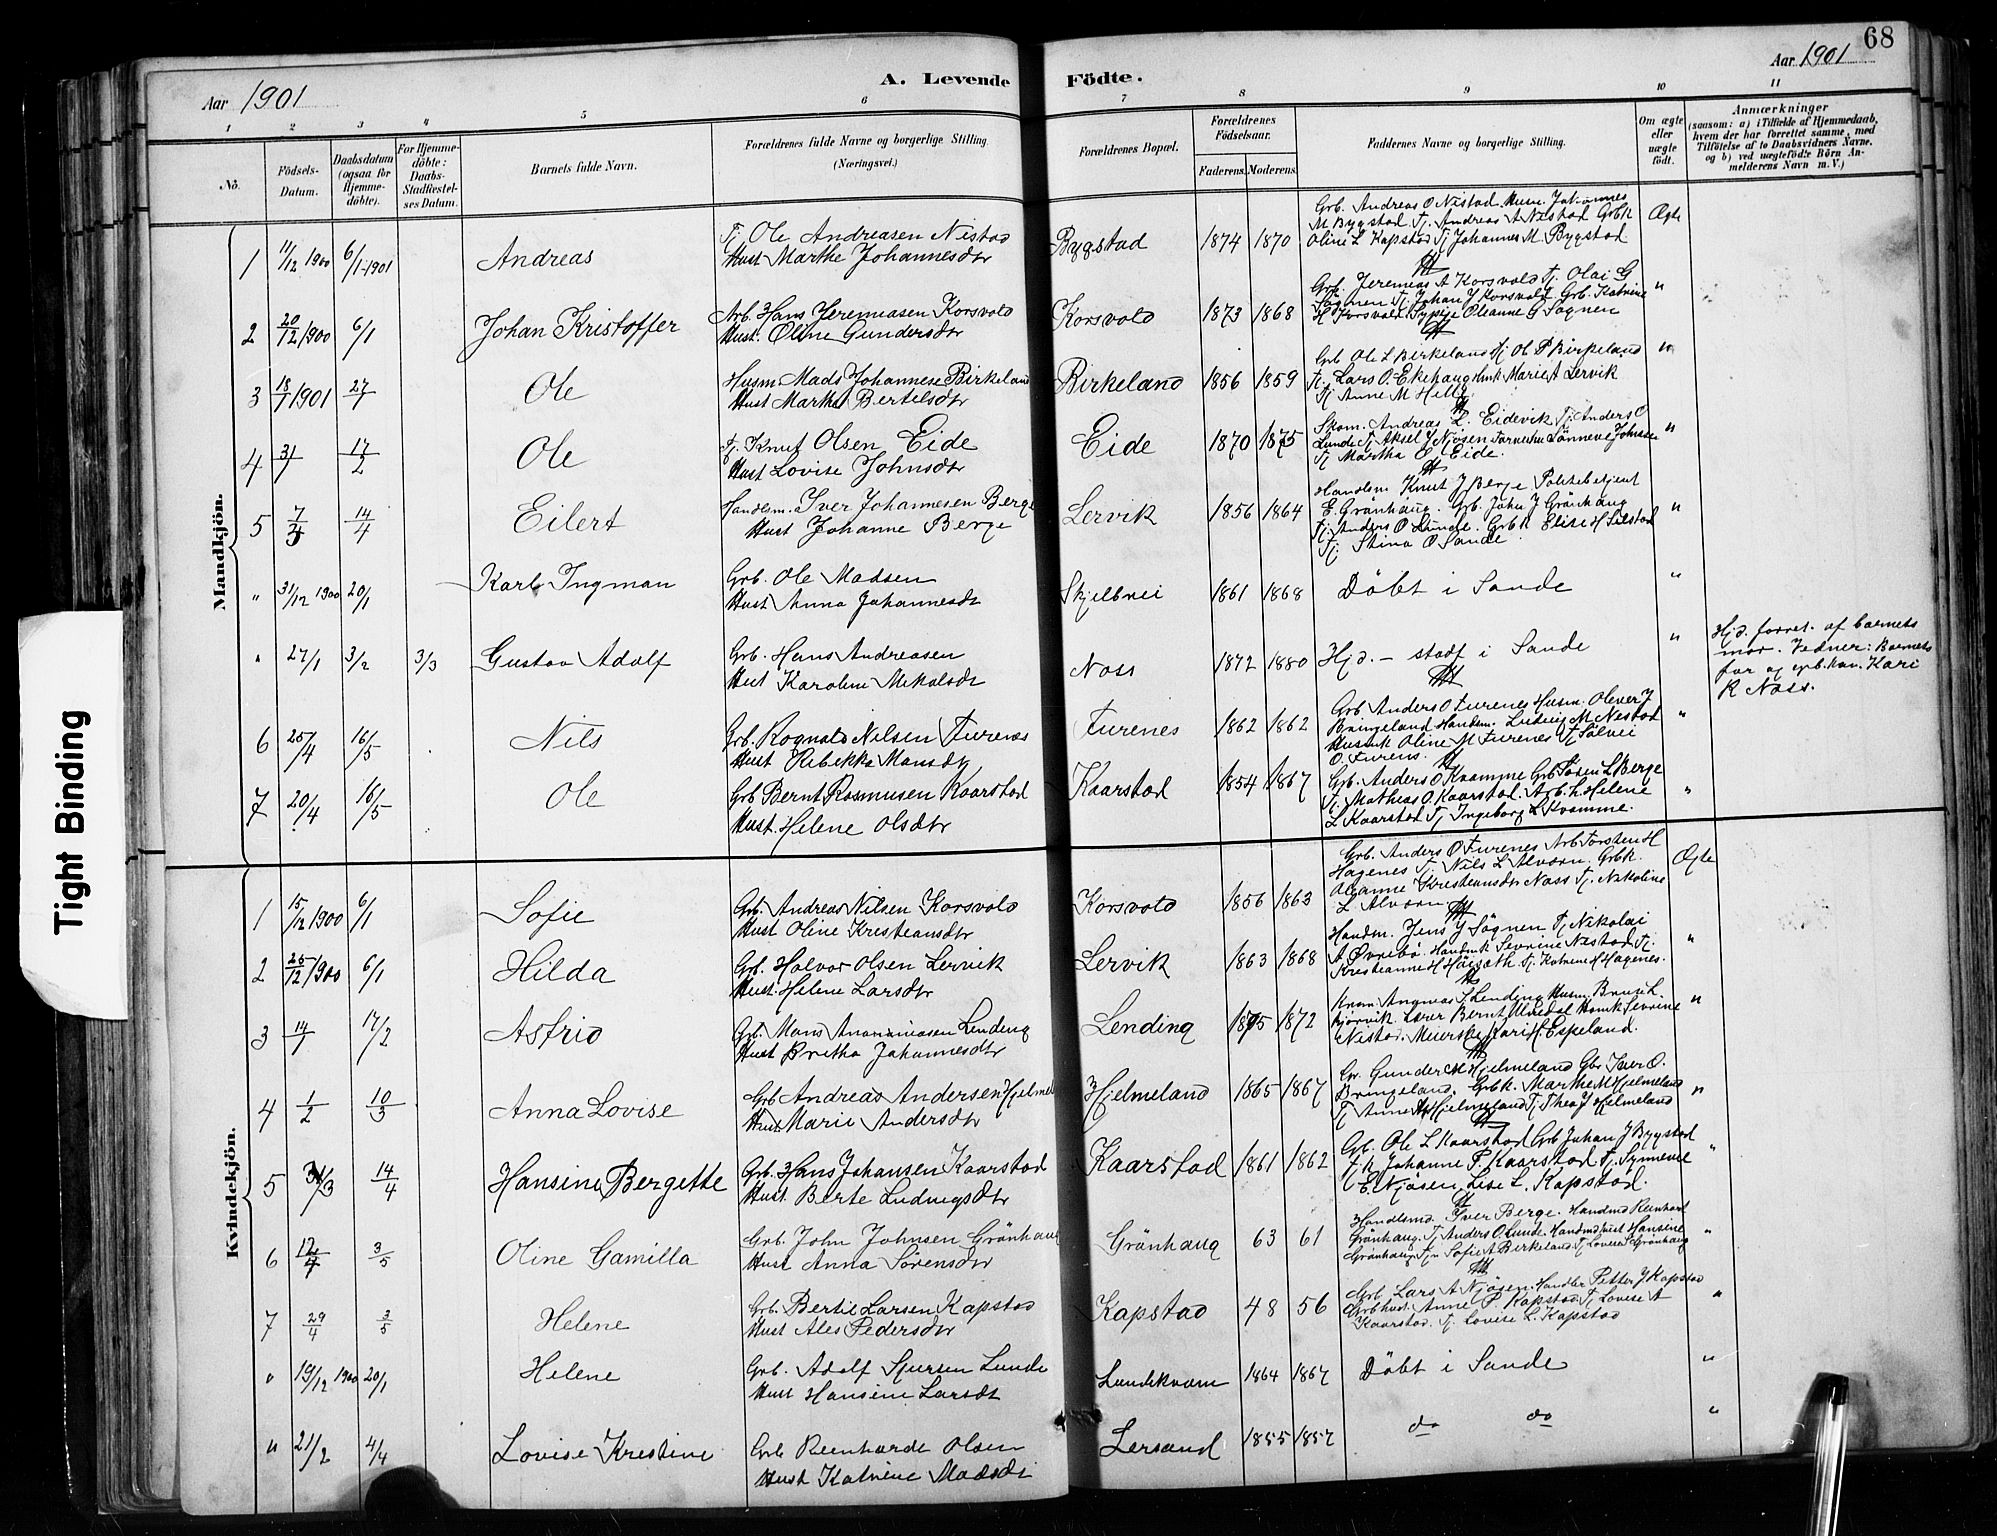 68
A. Levende Födte.
Aar 1901
Aar 1901
1 2 3 4 5 6 7 8 9 10 11
No.
Födsels-Datum.
Daabsdatum (ogsaa for Hjemme-döbte).
For Hjemme-döbte: Daabs-Stadfæstel-ses Datum.
Barnets fulde Navn.
Forældrenes fulde Navne og borgerlige Stilling
(Næringsvei.)
Forældrenes Bopæl.
Forældrenes Födselsaar.
Faderens. Moderens.
Faddernes Navne og borgerlige Stilling.
Om ægte eller uægte födt.
Anmærkninger
(saasom: a) i Tilfælde af Hjemmedaab,
hvem der har forrettet samme, med
Tilföielse af to Daabsvidners Navne.
og b) ved uægtefödte Börn An-
melderens Navn m. V.)
Mandkjön.
1 11/12 1900 6/1-1901 Andreas
Tj. Ole Andreasen Nistad
Hust Marthe Johannesdtr
Bygstad 1874 1870
Grb. Andreas O Nistad. Husm. Johannes
M Bygstad Tj. Andreas A Nistad Grbk
Oline L Kapstad Tj Johannes M. Bygstad
Ægte
2 20/12 1900 6/1 Johan Kristoffer
Arb. Hans Jeremeasen Korsvold
Hust. Oline Gundersdtr
Korsvold 1873 1868
Grb. Jeremias A Korsvold Tj. Olai G
Søgnen Tj. Johan J Korsvold Grb. Katrine
H Korsvold Sypige Oleanne G Søgnen
"
3 18/1 1901 27/1 Ole
Husm. Mads Johannese Birkeland
Hust Martha Bertelsdtr
Birkeland 1856 1859
Grb Ole L Birkeland Tj Ole P Birkeland
Tj. Lars O. Ekehaug Marie A Lervik
Tj Anne M Hille
"
4 3/1 17/2 Ole
Tj. Knut Olsen Eide
Hust Lovise Johnsdtr
Eide 1870 1875
Skom. Andreas L. Eidevik Tj. Anders O
Lunde Tj Aksel J Njøsen Sønneve Johnsen
Tj Martha O Eide.
"
5 14/4 Eilert
Handlsm. Iver Johannesen Berge
Hust Johanne Berge
Lervik 1856 1864
Handlsm Knut J Berge Politibetjent
E. Grönhaug. Grb. John J Grönhaug
Tj. Anders O Lunde. Grbk Elise H Silstad
Tj. Stina O Sande
"
" 31/12 1900 20/1 Karl Ingman
Grb. Ole Madsen
Hust Anna Johannesdt
Skjelbrei 1861 1868 Döbt i Sande "
" 27/1 3/2 3/3 Gustav Adolf
Grb. Hans Andreasen
Hust Karoline Mikalsdt
Nass 1872 1880 Hjd. – stadf i Sande "
Hjd. forret. af barnets
mor. Vidner: Barnets
far og Kari
R Nass.
6 25/4 16/5 Nils
Grb. Rognald Nilsen Furenes
Hust Rebekka Mansdtr
Furenes 1862 1862
Grb Anders O Furenes Husm. Olever J
Bringeland Handsm. Ludvig M Nestad
Oline M Furenes Tj Sølvei
O. Furens.
"
7 20/4 16/5 Ole
Grb Bernt Rasmusen Kaarstad
Hust. Helene Olsdtr
Kaarstad 1854 1867
Grb. Anders O Kvamme Grb Søren L Berge
Tj. Mathias O. Kaarstad. Arb.k Helene
L Kaarstad Tj Ingeborg L Kvamme.
"
Kvindekjön.
1 15/12 1900 6/1 Sofie
Grb. Andreas Nilsen Korsvold
Hust Oline Kristeansdtr
Korsvold 1856 1863
Grb. Anders O Furenes Arb Torsten H
Hagenes Tj. Nils L Alvorn. Grbk.
Oleanne Kristeansdtr Nass Tj. Nikoline
L Alvorn
Ægte
2 25/12 1900 6/1 Hilda
Grb. Halvor Olsen Lervik
Hust. Helene Larsdtr
Lervik 1863 1868
Handm. Jens J Søgnen Tj Nikolai
A Øvrebø. Handmk Sevrine Nestad Tj.
Kristeanne H Høisæth Tj. Katrine H Hagenes.
"
3 14/1 17/2 Astrid
Grb. Mons Lending
Hust Britha Johannesdtr
Lending 1875 1872
Lending Husm. L.
Bjørvik Lærer Bernt Sevrine
Nistad. Meierske Kari H. Espeland.
"
4 1/2 10/3 Anna Lovise
Grb Andreas Andersen Hjelmel
Hust Marie Andersdtr
Hjelmeland 1865 1867
Gr. Gunder M Hjelmeland Gbr Iver O.
Bringeland. Grbk. Marthe M Hjelmeland
Tj Anne Hjelmeland Tj. Thea J Hjelmeland
"
5 14/4 Hansine Bergette
Grb. Hans Johansen Kaarstad
Hust Berte Ludvigsdtr
Kaarstad 1861 1862
Grb. Ole L Kaarstad Grb Johan J Bygstad
Johanne P. Kaarstad Tj. Synneve
E. Njøsen, Lise L. Kapstad.
"
6 12/4 3/5 Oline Gamilla
Grb. John Johnsen Grönhaug
Hust Anna Sörensdtr
Grönhaug 63 61
Handlsmd. Iver Berge. Handmd Reinhart
Grönhaug. Tj Anders O. Lunde Handmd hust Hansine
Grönhaug Tj. Sofie A Birkeland Tj Lovise Grönhaug
"
7 29/4 3/5 Helene
Grb. Bertil Larsen Kapstad
Hust Ales Pedersdtr
Kapstad 48 56
Grb. Lars A Njøsen. Handler Petter J Kapstad
Grbhust. Anne P. Kapstad Tj Lovise A
Kaarstad. Tj. Lovise L. Kapstad
"
" 19/12 1900 20/1 Helene
Grb. Adolf Sjursen Lunde
Hust Hansine Larsdt
Lundekvam 1864 1867 Döbt i Sande "
" 21/2 4/4 Lovise Kristine
Grb Reinharde Olsen
Hust Katrine Madsdt
Lersand 1855 1857 do do "
Tight Binding